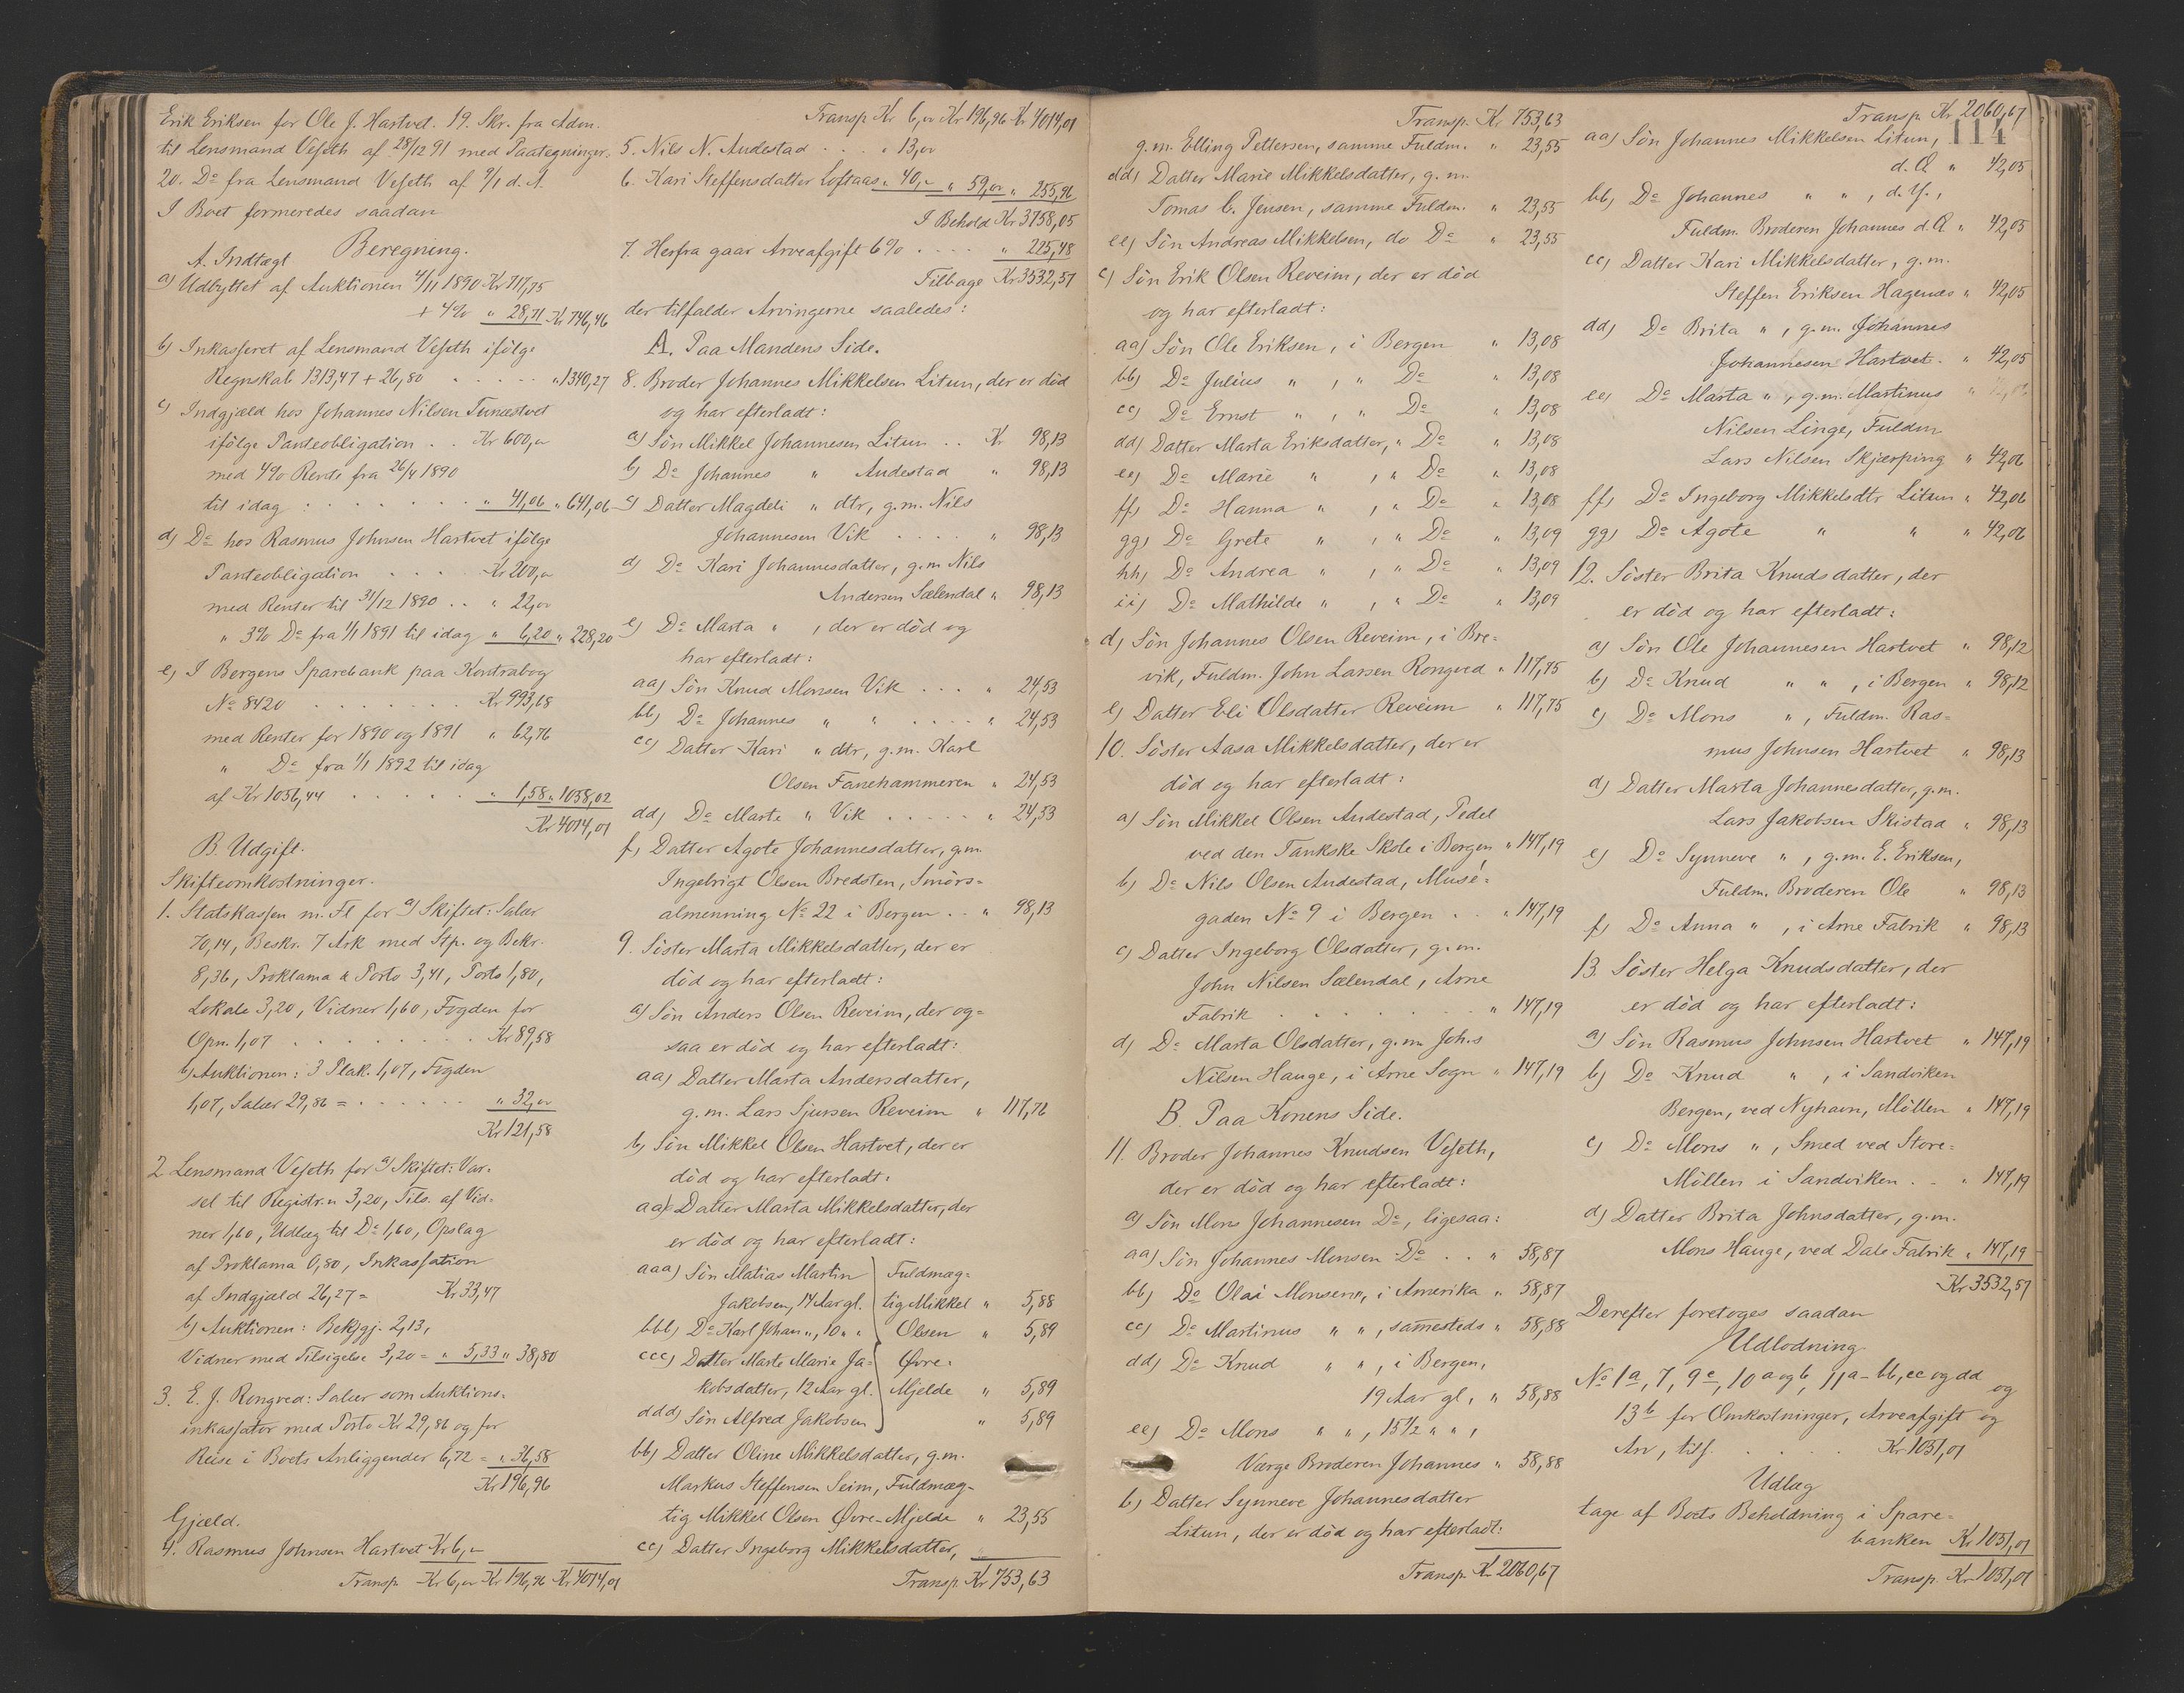 Erik Eriksen for Ole J. Hartvet. 19. Skr. fra Adm.
til Lensmand Veseth af 28/12 91 med Paategninger.
20. Do fra Lensmand Veseth af 9/1 d. A.
I Boet formeredes saadan
Beregning.
A. Indtægt
a) Udbyttet af Auktionen 4/11 1890 Kr 717,75
+ 4% " 28,71 Kr 746,46
b) Inkasseret af Lensmand Veseth ifölge
Regnskab 1313,47 + 26,80 . . . . . " 1340,27
c) Indgjæld hos Johannes Nilsen Tunæstvet
ifölge Panteobligation . . Kr 600,00
med 4% Rente fra 26/4 1890
til idag . . . . . . . " 41,06 " 641,06
d) Do hos Rasmus Johnsen Hartvet ifölge
Panteobligation . . . . Kr 200,00
med Renter til 31/12 1890 . . " 22,00
" 3% Do fra 1/1 1891 til idag " 6,20 " 228,20
e) I Bergens Sparebank paa Kontrabog
No 8420 . . . . . . . Kr 993,68
med Renter for 1890 og 1891 " 62,76
" Do fra 1/1 1892 til idag
af Kr 1056,44 . . . . . " 1,58 " 1058,02
Kr 4014,01
B. Udgift.
Skifteomkostninger.
1. Statskassen m. Fl for a) Skiftet: Salær
70,14, Beskr. 7 Ark med Stp. og Bekr.
8,36, Proklama & Porto 3,41, Porto 1,80,
Lokale 3,20, Vidner 1,60, Fogden for
Opn. 1,07 . . . . . . . . . Kr 89,58
b) Auktionen: 3 Plak. 1,07, Fogden
1,07, Salær 29,86 = . . . . . . " 32,00
Kr 121,58
2. Lensmand Veseth for a) Skiftet: Var-
sel til Registr.n 3,20, Tils. af Vid-
ner 1,60, Udlæg til Do 1,60, Opslag
af Proklama 0,80, Inkassation
af Indgjæld 26,27 = Kr 33,47
b) Auktionen: Bekjgj. 2,13,
Vidner med Tilsigelse 3,20 = " 5,33 " 38,80
3. E. J. Rongved: Salær som Auktions-
inkassator med Porto Kr 29,86 og for
Reise i Boets Anliggender 6,72 = " 36,58
Kr 196,96
Gjæld.
4. Rasmus Johnsen Hartvet Kr 6,00
Transp. Kr 6,00 Kr 196,96 Kr 4014,01
Transp. Kr 6,00 Kr 196,96 Kr 4014,01
5. Nils N. Audestad . . . " 13,00
6. Kari Steffensdatter Loftaas " 40,00 " 59,00 " 255,96
I Behold Kr 3758,05
7. Herfra gaar Arveafgift 6% . . . . " 225,48
Tilbage Kr 3532,57
der tilfalder Arvingerne saaledes:
A. Paa Mandens Side.
8. Broder Johannes Mikkelsen Litun, der er död
og har efterladt:
a) Sön Mikkel Johannesen Litun . . Kr 98,13
b) Do Johannes " Audestad " 98,13
c) Datter Magdeli " dtr, g.m. Nils
Johannesen Vik . . . . " 98,13
d) Do Kari Johannesdatter, g.m. Nils
Andersen Sælendal " 98,13
e) Do Marta " , der er död og
har efterladt:
aa) Sön Knud Monsen Vik . . . " 24,53
bb) Do Johannes " " . . . . " 24,53
cc) Datter Kari " dtr, g.m. Karl
Olsen Fanehammeren " 24,53
dd) Do Marte " Vik . . . . . " 24,53
f) Datter Agote Johannesdatter, g.m.
Ingebrigt Olsen Bredsten, Smörs-
almenning No 22 i Bergen . . " 98,13
9. Söster Marta Mikkelsdatter, der er
död og har efterladt:
a) Sön Anders Olsen Reveim, der og-
saa er död og har efterladt:
aa) Datter Marta Andersdatter,
g.m. Lars Sjursen Reveim " 117,76
b) Sön Mikkel Olsen Hartvet, der er
död og har efterladt:
aa) Datter Marta Mikkelsdatter, der
er död og har efterladt:
aaa) Sön Matias Martin Fuldmæg-
Jakobsen, 14 Aar gl. tig Mikkel " 5,88
bbb) Do Karl Johan ", 10 " " Olsen " 5,89
ccc) Datter Marte Marie Ja- Øvre-
kobsdatter, 12 Aar gl. Mjelde " 5,89
ddd) Sön Alfred Jakobsen " 5,89
bb) Datter Oline Mikkelsdatter, g.m.
Markus Steffensen Seim, Fuldmæg-
tig Mikkel Olsen Øvre-Mjelde " 23,55
cc) Datter Ingeborg Mikkelsdatter,
Transp. Kr 753,63
Transp. Kr 753,63
g.m. Elling Pettersen, samme Fuldm. " 23,55
dd) Datter Marie Mikkelsdatter, g.m.
Tomas C. Jensen, samme Fuldm. " 23,55
ee) Sön Andreas Mikkelsen, do Do " 23,55
c) Sön Erik Olsen Reveim, der er död
og har efterladt:
aa) Sön Ole Eriksen, i Bergen " 13,08
bb) Do Julius " , " Do " 13,08
cc) Do Ernst " , " Do " 13,08
dd) Datter Marta Eriksdatter, " Do " 13,08
ee) Do Marie " , " Do " 13,08
ff) Do Hanna " , " Do " 13,08
gg) Do Grete " , " Do " 13,09
hh) Do Andrea " , " Do " 13,09
ii) Do Mathilde " , " Do " 13,09
d) Sön Johannes Olsen Reveim, i Bre-
vik, Fuldm. John Larsen Rongved " 117,75
e) Datter Eli Olsdatter Reveim " 117,75
10. Söster Aasa Mikkelsdatter, der er
död og har efterladt:
a) Sön Mikkel Olsen Audestad, Pedel
ved den Tankske Skole i Bergen " 147,19
b) Do Nils Olsen Audestad, Musé-
gaden No 9 i Bergen . . " 147,19
c) Datter Ingeborg Olsdatter, g.m.
John Nilsen Sælendal, Arne
Fabrik . . . . . . . " 147,19
d) Do Marta Olsdatter, g.m. Joh.s
Nilsen Hauge, i Arne Sogn " 147,19
B. Paa Konens Side.
11. Broder Johannes Knudsen Veseth,
der er död og har efterladt:
a) Sön Mons Johannesen Do, ligesaa:
aa) Sön Johannes Monsen Do . . " 58,87
bb) Do Olai Monsen, i Amerika " 58,87
cc) Do Martinus " " , samesteds " 58,88
dd) Do Knud " " , i Bergen,
19 Aar gl, " 58,88
ee) Do Mons " " , 15 1/2 " " ,
Værge Broderen Johannes " 58,88
b) Datter Synneve Johannesdatter
Litun, der er död og har efterladt:
Transp. Kr 2060,67
Transp. Kr 2060,67
114
aa) Sön Johannes Mikkelsen Litun,
d. Æ " 42,05
bb) Do Johannes " " , d. Y.,
Fuldm. Broderen Johannes d. Æ " 42,05
cc) Datter Kari Mikkelsdatter, g.m.
Steffen Eriksen Hagenæs " 42,05
dd) Do Brita " , g.m. Johannes
Johannesen Hartvet. " 42,05
ee) Do Marta " , g.m. Martinus
Nilsen Linge, Fuldm
Lars Nilsen Skjærping " 42,06
ff) Do Ingeborg Mikkelsdtr Litun " 42,06
gg) Do Agote " " " 42,06
12. Söster Brita Knudsdatter, der
er död og har efterladt:
a) Sön Ole Johannesen Hartvet " 98,12
b) Do Knud " " , i Bergen " 98,12
c) Do Mons " , Fuldm. Ras-
mus Johnsen Hartvet " 98,13
d) Datter Marta Johannesdatter, g.m.
Lars Jakobsen Skistad " 98,13
e) Do Synneve " , g.m. E. Eriksen,
Fuldm. Broderen Ole " 98,13
f) Do Anna " , i Arne Fabrik " 98,13
13. Söster Helga Knudsdatter, der
er död og har efterladt:
a) Sön Rasmus Johnsen Hartvet " 147,19
b) Do Knud " , i Sandviken
Bergen, ved Nyhavn, Möllen " 147,19
c) Do Mons " , Smed ved Store-
Möllen i Sandviken . . " 147,19
d) Datter Brita Johnsdatter, g.m.
Mons Hauge, ved Dale Fabrik " 147,19
Kr 3532,57
Derefter foretoges saadan
Udlodning
No 1a, 7, 9c, 10 a og b, 11a - bb, cc og dd og
13b for Omkostninger, Arveafgift og
Arv, tils. . . . . Kr 1051,01
Udlæg
tage af Boets Beholdning i Spare-
banken Kr 1051,01
Transp. Kr 1051,01